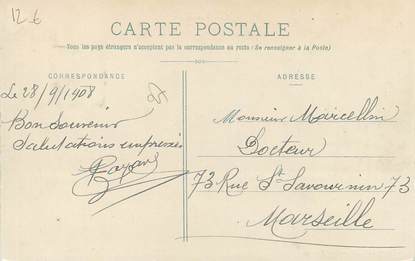 12 €
CARTE POSTALE
Tous les pays étrangers n'acceptent pas la correspondance au recto (Se renseigner à la Poste)
CORRESPONDANCE
ADRESSE
Le 28/9/1908
Bon Souvenir
Salutations empressées
Monsieur Marcellin
Docteur
73 Rue St Savournin 73
Marseille